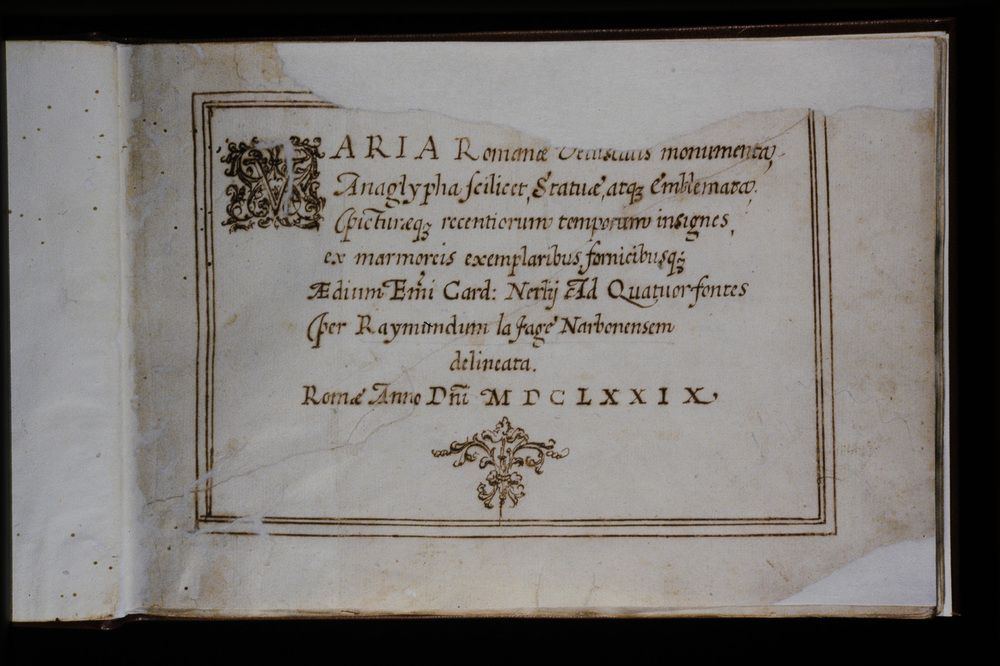 VARIA Romanæ Vetustatis monumenta,
Anaglypha scilicet, Statuæ, atqȝ Emblemata,
picturæqȝ recentiorum temporum insignes,
ex marmoreis exemplaribus, fornicibusqȝ
Ædium Em̃i Card: Nerlij Ad Quatuor fontes
per Raymundum la Fage Narbonensem
delineata.
Romæ Anno Dñi MDCLXXIX,